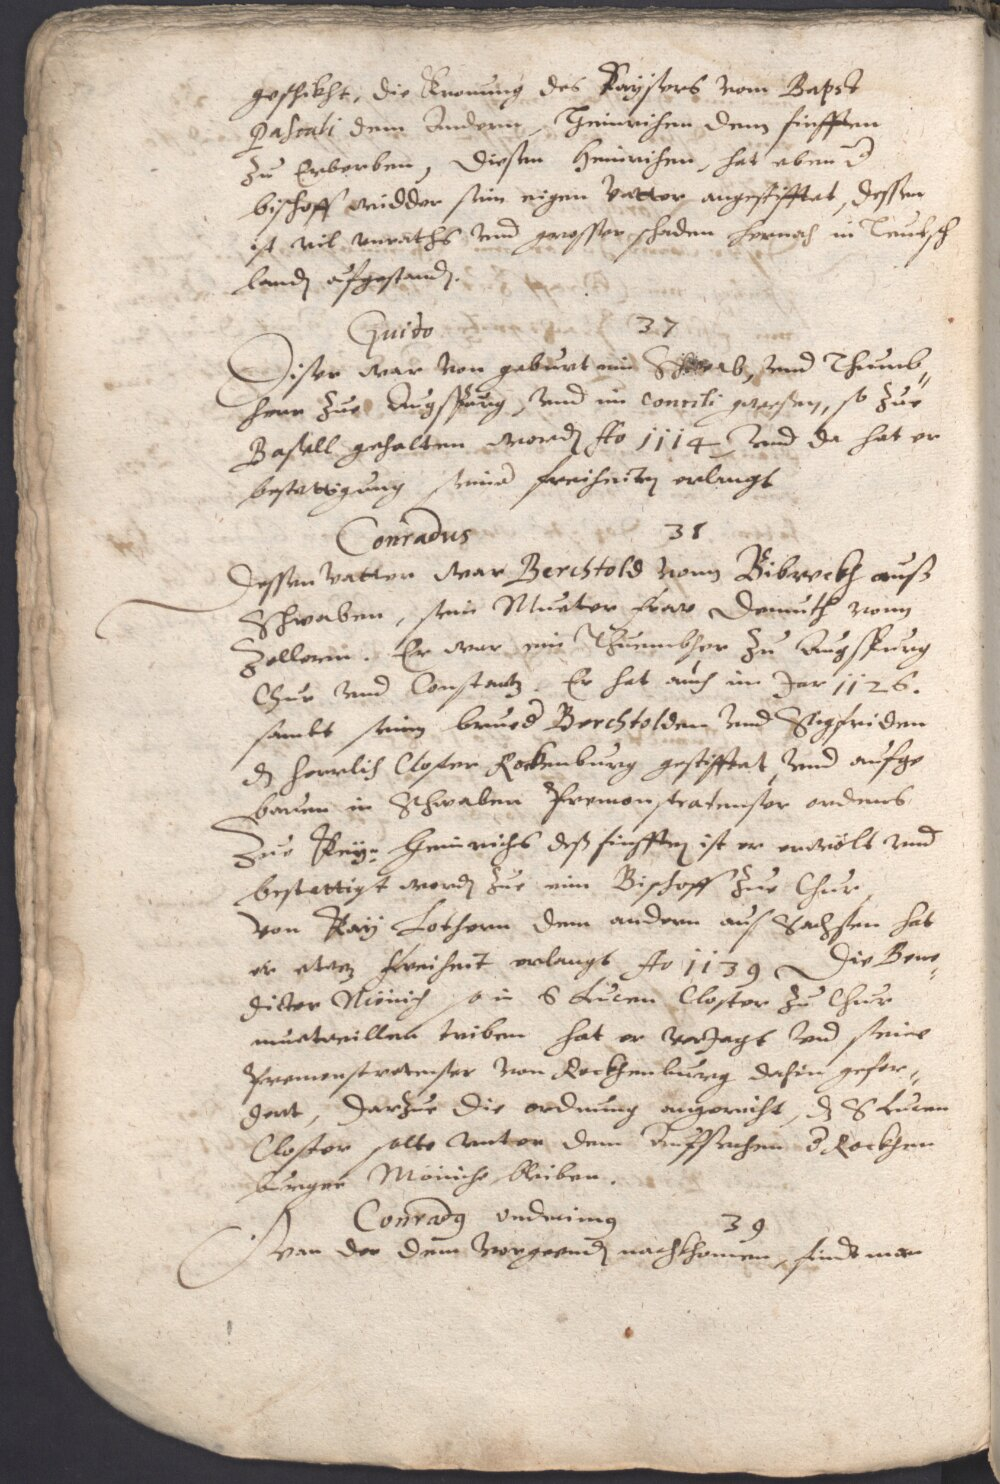 geschikht, die Kronung des Kaysers vom Bapst
Pascali dem Andern, Heinrichen dem finfften
zu Erwerben, Diesen Heinrichen, hat eben d
bischoff widder sein eigen Vatter angestifftet, dessen
ist vil vnraths vnd grosser schaden hernach in Teutsch
landt ufgestandn.
Guido 37
Diser war von geburt ein Schwab, vnd Thumb„
herr zue Augspurg, vnd im Concili gewesen, so zue
Basell gehalten wordn Ao 1114, vnd da hat er
bestettigung seiner freiheiten erlangt
Conradus 38
Dessen vatter war Berchtold vonn Bibreckh auß
Schwaben, sein Mueter fraw Demuth vonn
Zollern. Er war ein Thuembher zu Augspurg
Chur vnd Constantz. Er hat auch im Jar 1126.
sambt seinen brued Berchtolden vnd Sigfriden
dz herrlich Closter Rockenburg gestifftet, vnd aufge
bauen in Schwaben Premonstratenser ordens
Zue Key: Heinrichs deß finfften ist er erwölt vnd
bestettigt wordn zue eim Bischoff zue Chur,
von Kay Lothern dem andern aus Sachsen hat
er etwz freiheit erlangt Ao 1139 Die Bene„
dicter Mönich so in S Lucen Closter zu Chur
muetwillen triben hat er veriagt vnd seine
Premonstratenser von Rockhenburg dahin gefor„
dert, darzue die ordnung angericht, dz S Lucen
Closter solte vnter dem auffsechen d Rockhen
burger Mönichs bleiben.
Conradg vndecimg 39
Wan der dem vorgeendn nachkhomen, findt man